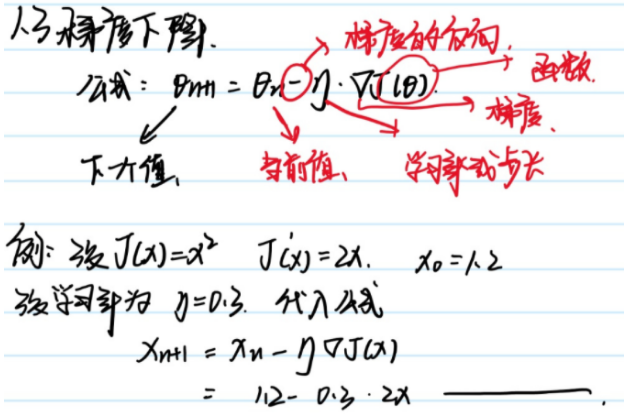 1.3 梯度下降.
梯度的反向.
公式: θn+1 = θn - η · ∇J(θ).
函数.
梯度.
下个值、
当前值、
学习率或步长
例: 设 J(x)=x² J'(x)=2x. x₀=1.2
设学习率为 η=0.3. 代入公式
xn+1 = xn - η∇J(x)
= 1.2 - 0.3 · 2x